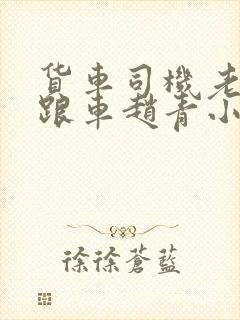 货車司機老
跟車趙青小
徐徐蒼藍